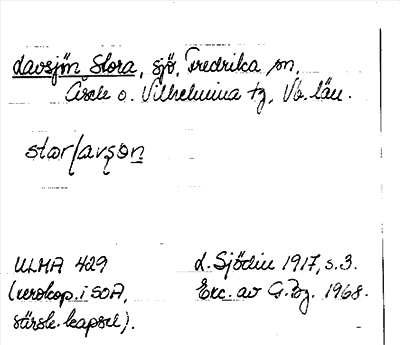 Lavsjön, Stora, sjö, Fredrika sn,
Åsele o. Vilhelmina tg, Vb. län.
ULMA 429
(xerokop. i SOA,
särsk. kapsel).
L. Sjödin 1917, s. 3.
Exc. av G. Pg. 1968.